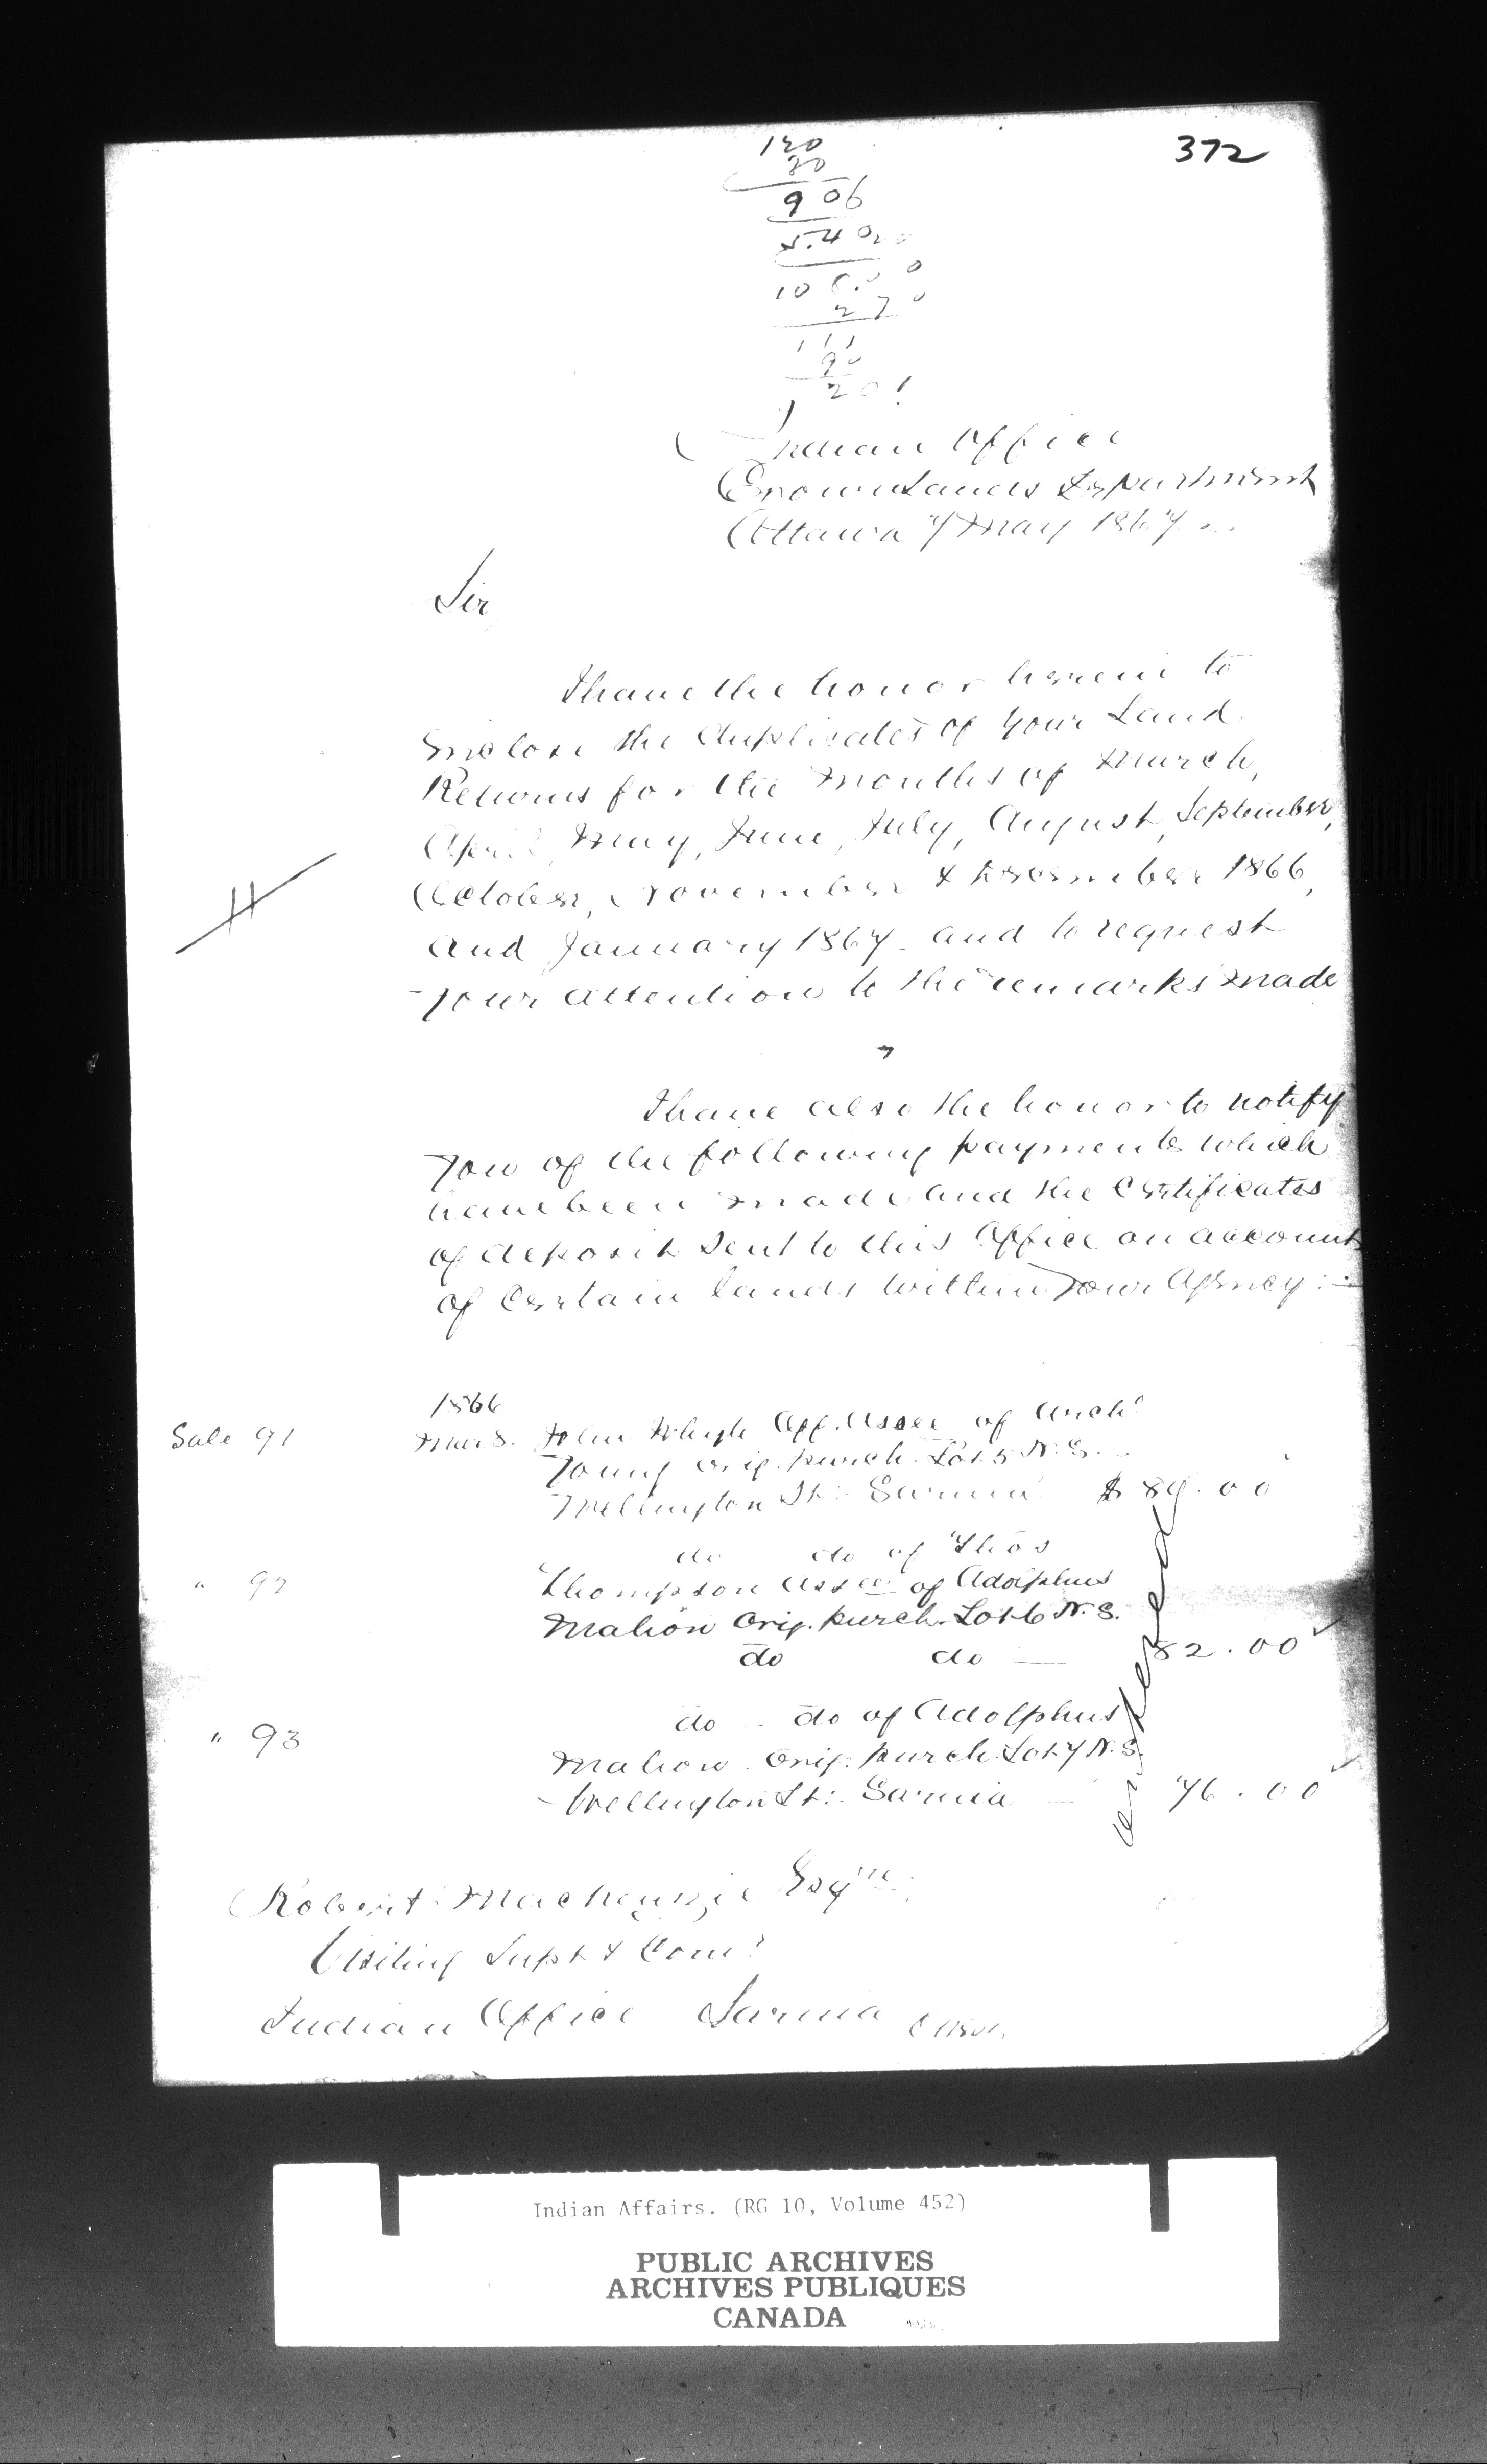 372
130
80
9 06
5.40
10 8.0 0
2 7 0
111
90
201
Indian Office
Crown Lands Department
Ottawa 7 May 1867
Sir
I have the honor herein to
enclose the duplicates of your Land
Returns for the months of March,
April, May, June, July, August, September,
October, November & December 1866,
and January 1867 and to request
your attention to the remarks made
I have also the honor to notify
you of the following payments which
have been made and the Certificates
of deposit sent to this Office on account
of Certain lands within your Agency:-
1866
Sale 91 Mar 8. John Assee of Arch
Young Orig. purch. Lot 5 N.S.
Wellington St: Sarnia $ 89.00
do do of Thos
" 92 Thompson Assee of Adolphus
Mahon Orig. purch. Lot 6 N.S.
do do — 82.00
do do of Adolphus
" 93 Mahon Orig. purch. Lot 7 N.S.
Wellington St: Sarnia — 76.00
entered
Robert Mackenzie Esqre
Visiting Supt & Comr
Indian Office Sarnia
Indian Affairs. (RG 10, Volume 452)
PUBLIC ARCHIVES
ARCHIVES PUBLIQUES
CANADA